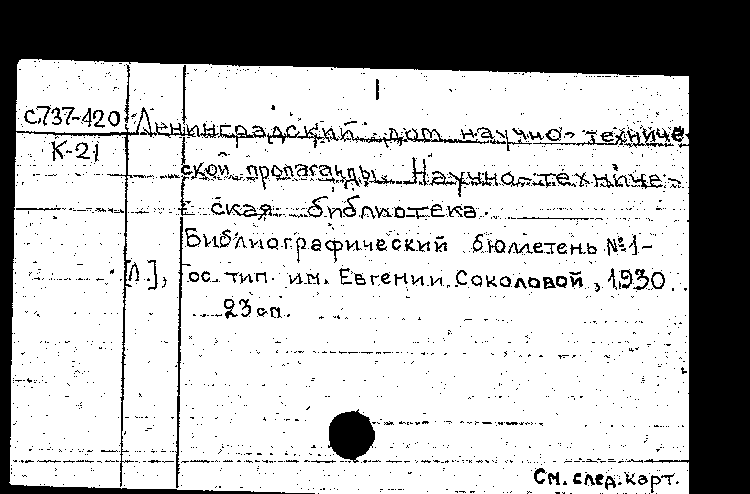 I
С737-420 Ленинградский дом научно-техниче-
К-21
ской пропаганды. Научно-техниче-
ская библиотека.
Библиографический бюллетень №1-
[Л.], Гос. тип. им. Евгении Соколовой, 1930
23 см.
См. след. карт.